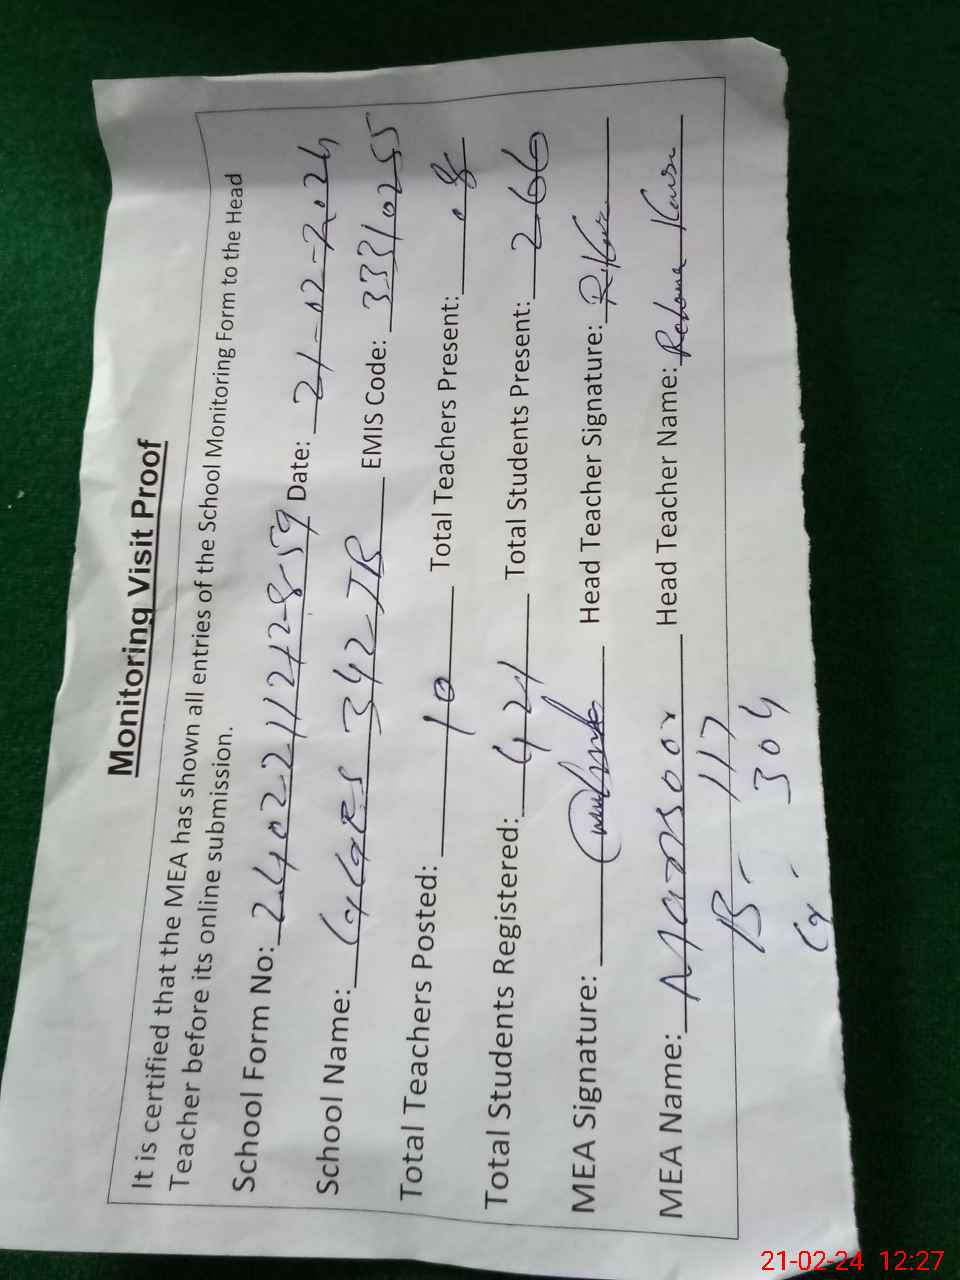 Monitoring Visit Proof
It is certified that the MEA has shown all entries of the School Monitoring Form to the Head
Teacher before its online submission.
School Form No: Date: 21-02-2024
School Name: 342 JB EMIS Code: 33310255
Total Teachers Posted: 10 Total Teachers Present: 08
Total Students Registered: 421 Total Students Present: 266
MEA Signature: Head Teacher Signature: R.Kur
MEA Name: Manzoor Head Teacher Name: Kousr
B- 117
G- 304
21-02-24 12:27